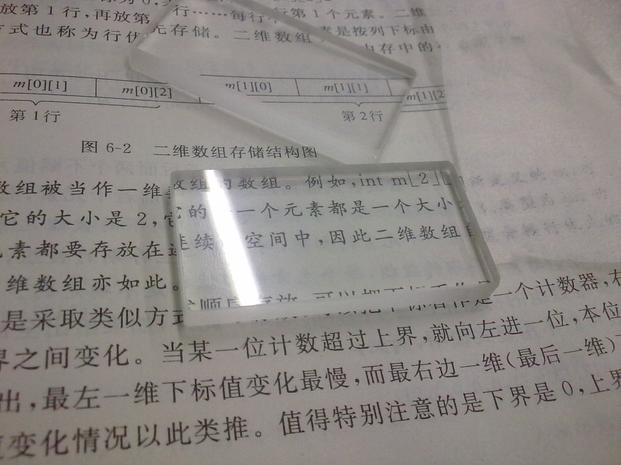 放第1行,再放第 行……每行 第1个元素。二维
方式也称为行优 元存储。二维数组 是按列下标由
内存中的
m[0][1] m[0][2] m[1][0] m[1][1] m[1][2]
第1行 第2行
图 6-2 二维数组存储结构图
数组被当作一维 数组的数组。例如,int m[2]
它的大小是2, 它的 一个元素都是一个大小
元素都要存放在 连续 空间中,因此二维数组
维数组亦如此。
顺序存放
是采取类似方式 可以把下标看作是一个计数器,右
界之间变化。当某一位计数超过上界,就向左进一位,本位
出,最左一维下标值变化最慢,而最右边一维(最后一维)
变化情况以此类推。值得特别注意的是下界是0,上界